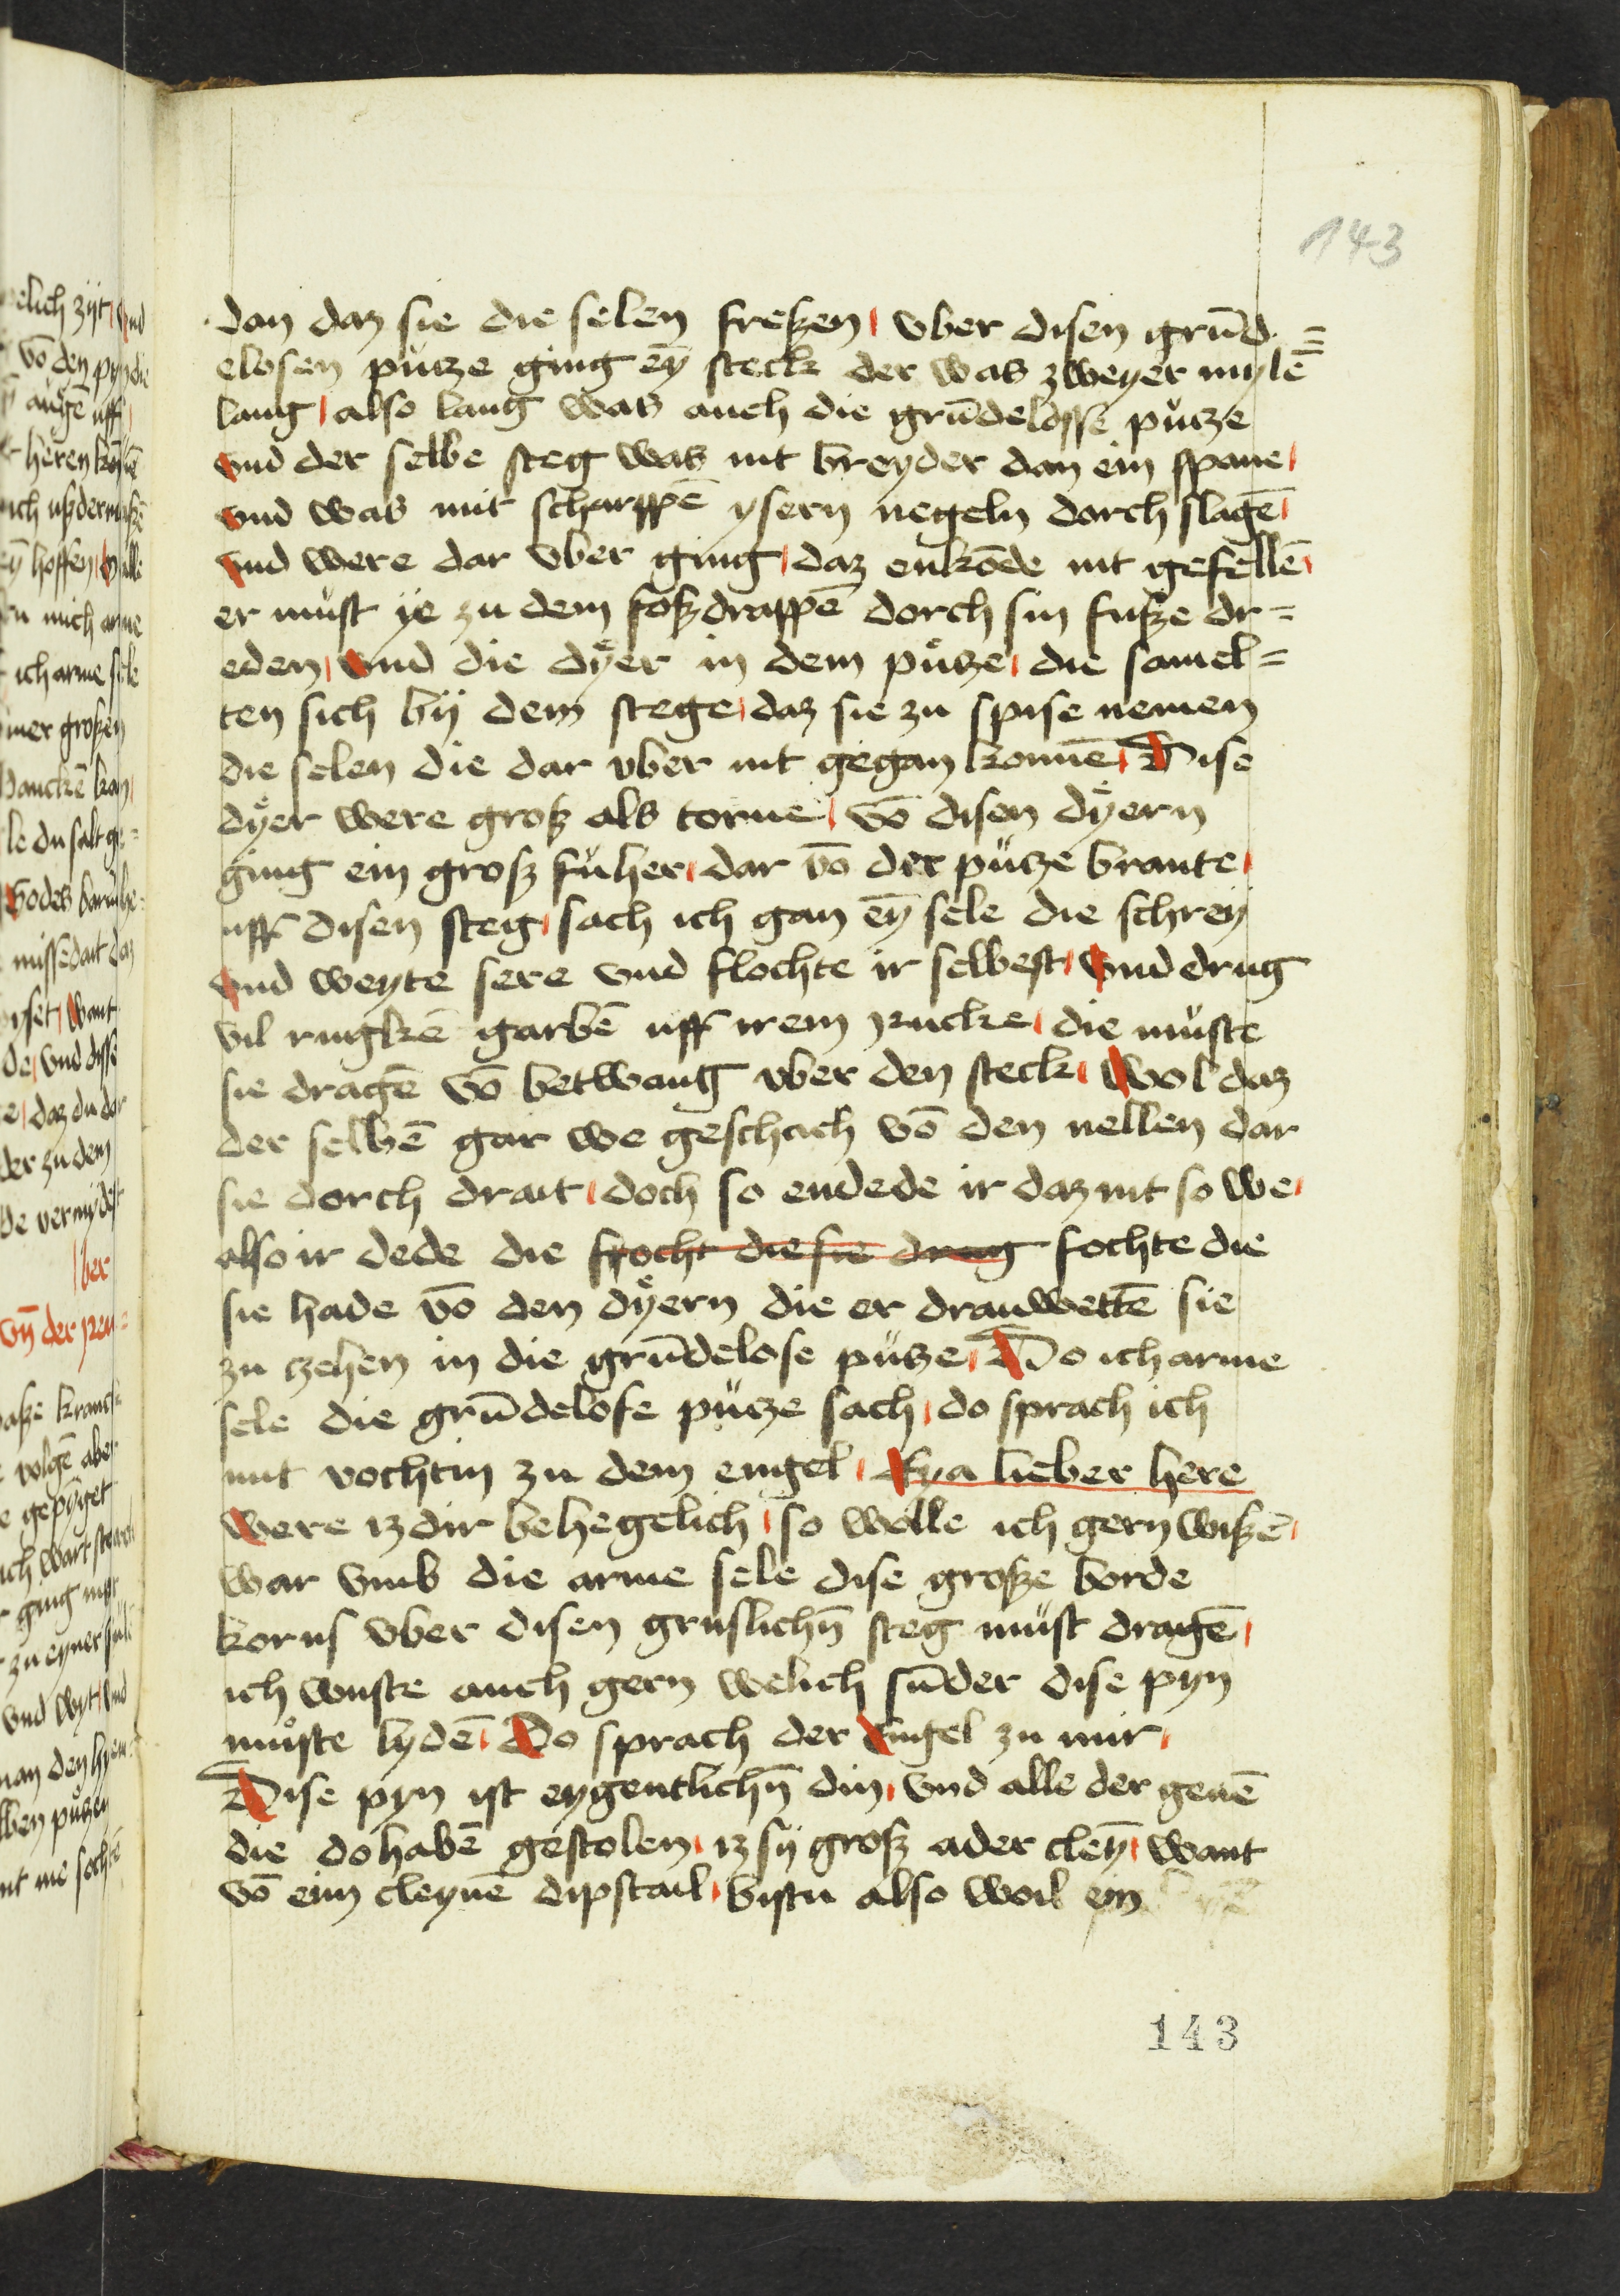 143
dan daz sie die selen freßen vber disen grūd=
elosen putze ging eȳ steck der was zweyer mylē
lang also lang was auch die grūdelosse pütze
vnd der selbe steg was nit breyder dan ein spane
vnd was mit scharppē ysern negeln dorch slagē
vnd were dar vber ging daz enkōde nit gefellē
er must ye zu dem foßdrappē dorch sin fuße dr=
eden vnd die dÿer in dem pütze die samel=
ten sich bÿ dem stege daz sie zu spise nemen
die selen die dar vber nit gegan konnē Dise
dÿer were groß als torne vō disen dÿern
ging ein groß füher dar vō der pütze brante
uff disen steg sach ich gan eȳ sele die schreÿ
vnd weyte sere vnd flochte ir selbest vnd drug
vil rugkē garbē uff irem rucke die müste
sie dragē vō betwang vber den steck wol daz
der selbē gar we geschach vō den nellen dar
sie dorch drait doch so endede ir daz nit so we
also ir dede die frocht die sie drug fochte die
sie hade vō den dÿern die er drauwettē sie
zu zehen in die grūdelose pütze Do ich arme
sele die grūdelose pütze sach do sprach ich
mit vochtin zu dem engel Eya lieber here
were iz dir behegelich so wolle ich gern wißē
war vmb die arme sele dise große borde
korns vber disen gruslichn̄ steg müst dragē
ich wuste auch gern welich sūder dise pyn
müste lydē Do sprach der engel zu mir
Dise pyn ist eygentlichn̄ din vnd alle der genē
die do habē gestolen iz sÿ groß ader cleȳ want
vō eim cleynē dipstail bistu also woil em
143